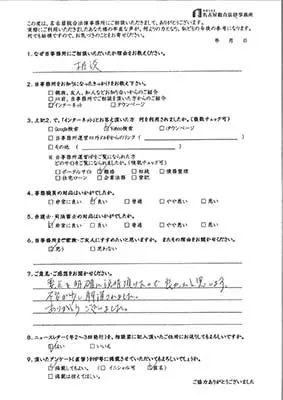 名古屋総合法律事務所
この度は、名古屋総合法律事務所にご相談いただきまして、ありがとうございます。
実際にご利用いただきましたあなた様の率直な声が、何よりの力となり、私どもの今後の参考になります。
何でも結構ですので、お気づきのことをお寄せください。
年 月 日
1. なぜ当事務所にご相談いただいたか理由をお教えください。
相談
2. 当事務所をお知りになったきっかけをお教え下さい。
□親族、友人、知人などお知り合いからのご紹介
□以前、当事務所でご相談を頂いた方からのご紹介
☑インターネット □タウンページ
3. 上記2. で、「インターネット」とお答え頂いた方 何を利用されましたか。(複数チェック可)
□Google検索 ☑Yahoo検索 □iタウンページ
□当事務所運営HP以外のHPからのリンク( )
□その他( )
※当事務所運営HPをご覧になられた方
どのサイトをご覧になられましたか。(複数チェック可)
□ポータルサイト ☑離婚 □相続 □債務整理
□住宅ローン □企業法務 □登記
4. 事務職員の対応はいかがでしたか。
□非常に良い ☑良い □普通 □やや悪い □悪い
5. 弁護士・司法書士の対応はいかがでしたか。
☑非常に良い □良い □普通 □やや悪い □悪い
6. 当事務所をご親族・ご友人にすすめたいと思いますか。 またその理由をお聞かせください。
☑思う □思わない
7. ご意見・ご感想をお聞かせください。
要点を明確に説明頂けたので良かったと思います。
不安が少し解消されました。
ありがとうございました。
8. ニュースレター(年2~3回発行)を、相談票に記入頂いたご住所にお送りしてもよろしいですか。
☑はい □いいえ
9. 頂いたアンケート(直筆)をHP等に掲載させていただいてもよろしいでしょうか。
☑掲載してもよい。(□イニシャル可 ☑匿名)
□掲載は控えてほしい。
ご協力ありがとうございました